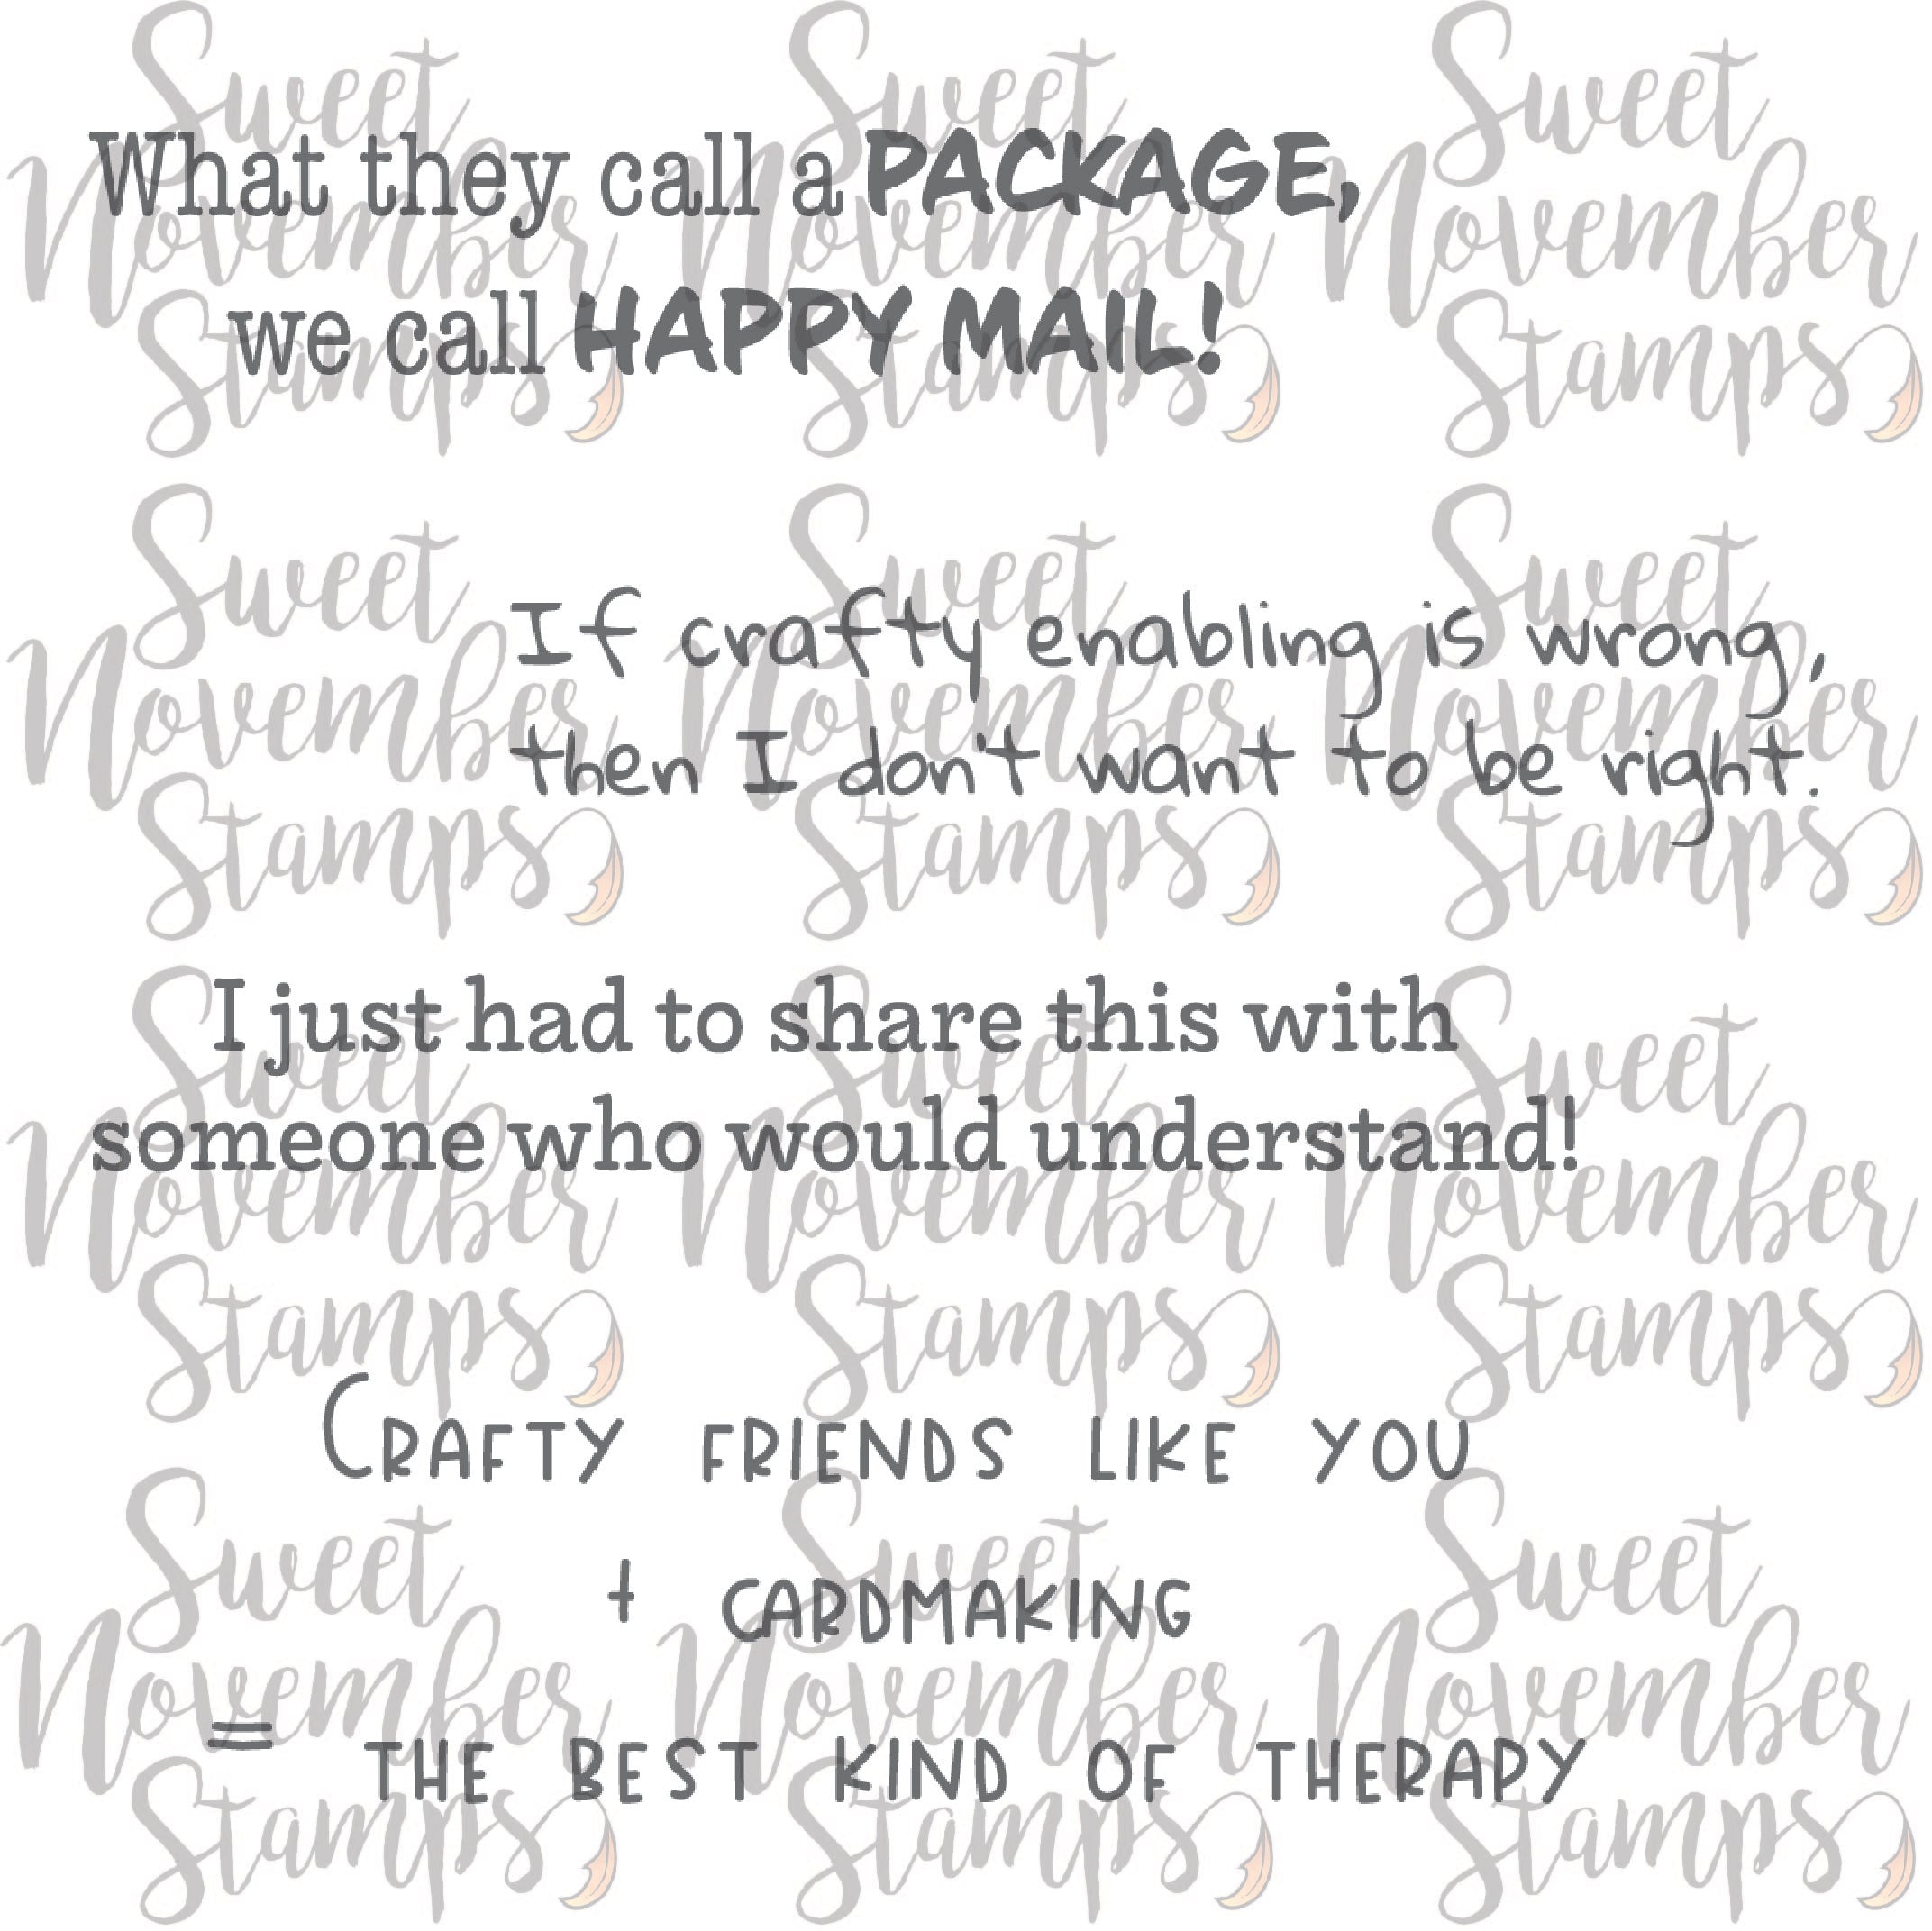 Sweet Sweet Sweet
What they call a PACKAGE,
November November November
we call HAPPY MAIL!
Stamps Stamps Stamps
Sweet Sweet Sweet
If crafty enabling is wrong,
November November November
then I don't want to be right.
Stamps Stamps Stamps
I just had to share this with
Sweet Sweet Sweet
someone who would understand!
November November November
Stamps Stamps Stamps
CRAFTY FRIENDS LIKE YOU
Sweet Sweet Sweet
+ CARDMAKING
November November November
= THE BEST KIND OF THERAPY
Stamps Stamps Stamps